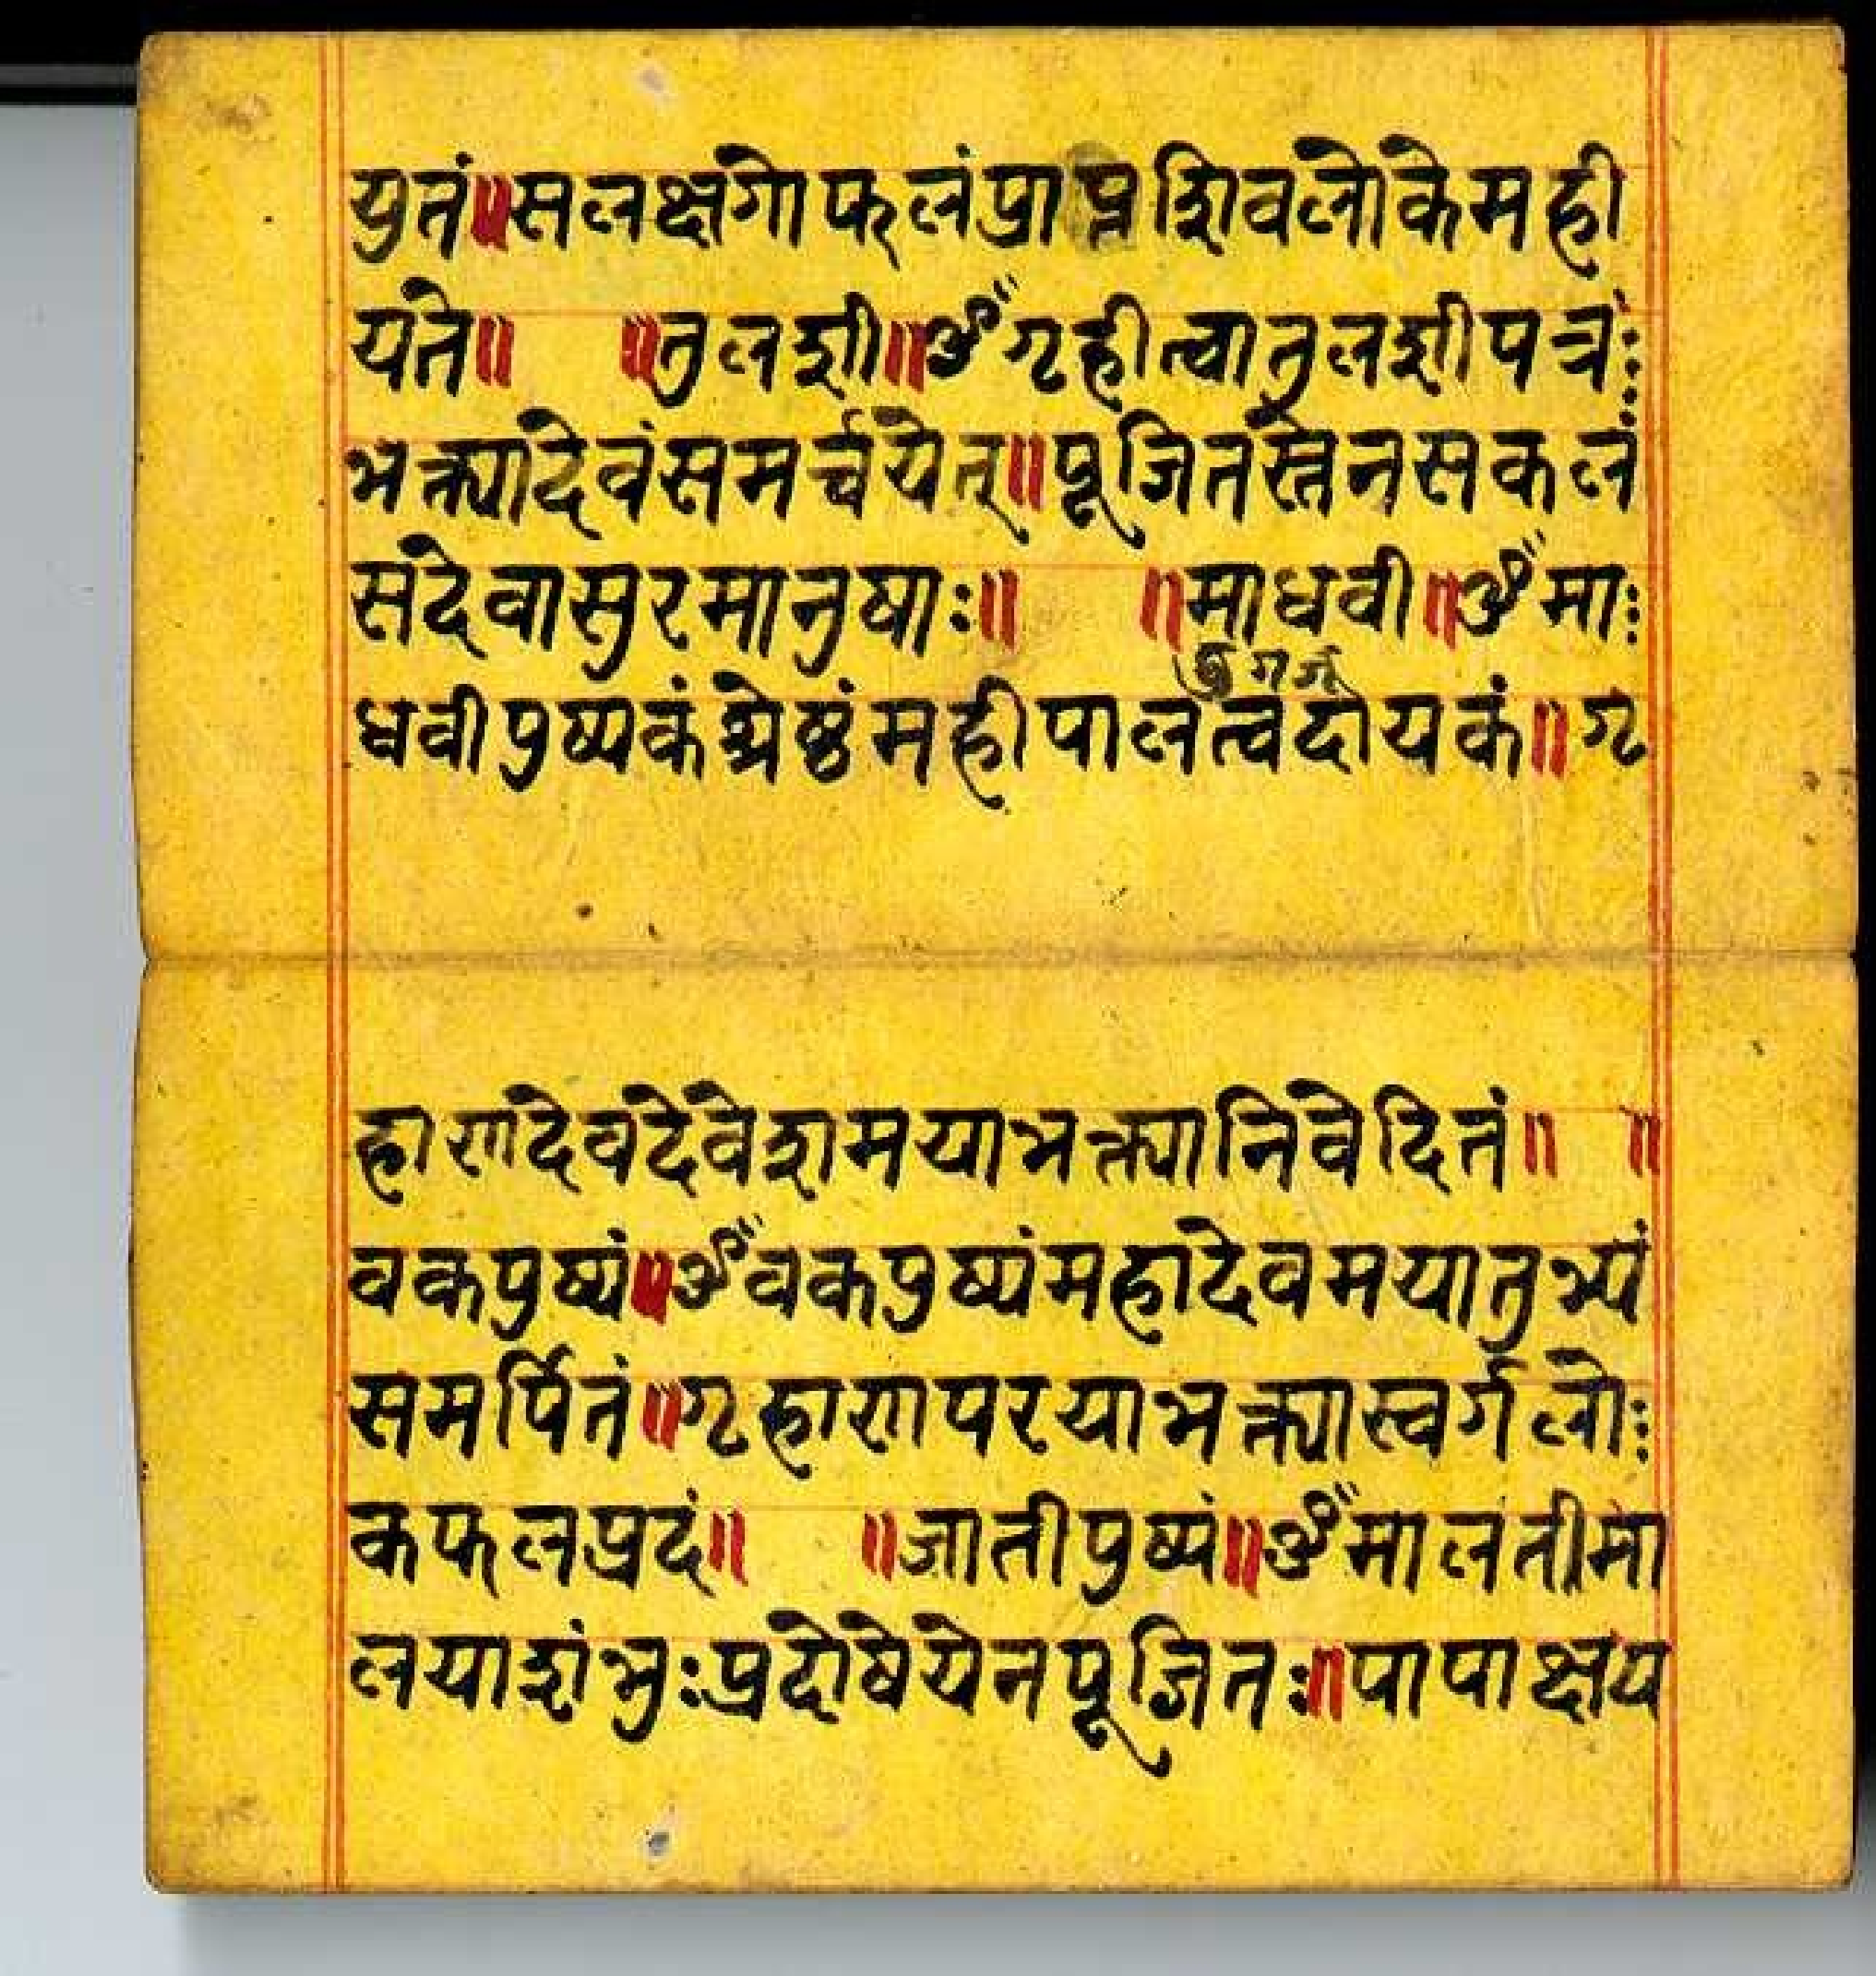 युतं॥सलक्षगोफलंप्राप्नशिवलोकेमही
यते॥ ॥तुलशी॥ॐगृहीत्वातुलशीपत्रः
भक्त्यादेवंसमर्च्चयेत्॥पूजितस्तेनसकलं
संदेवासुरमानुषाः॥ ॥माधवी॥ॐमाः
धवीपुष्पकंश्रेष्ठंमहीपालत्वदायकं॥गृ
हाणदेवदेवेशमयाभक्त्यानिवेदितं॥ ॥
वकपुष्पं॥ॐवकपुष्पंमहादेवमयातुभ्यं
समर्पितं॥गृहाणपरयाभक्त्यास्वर्गलोः
कफलप्रदं॥ ॥जातीपुष्पं॥ॐमालतीमा
लयाशंभुःप्रदोषेयेनपूजितः॥पापाक्षय